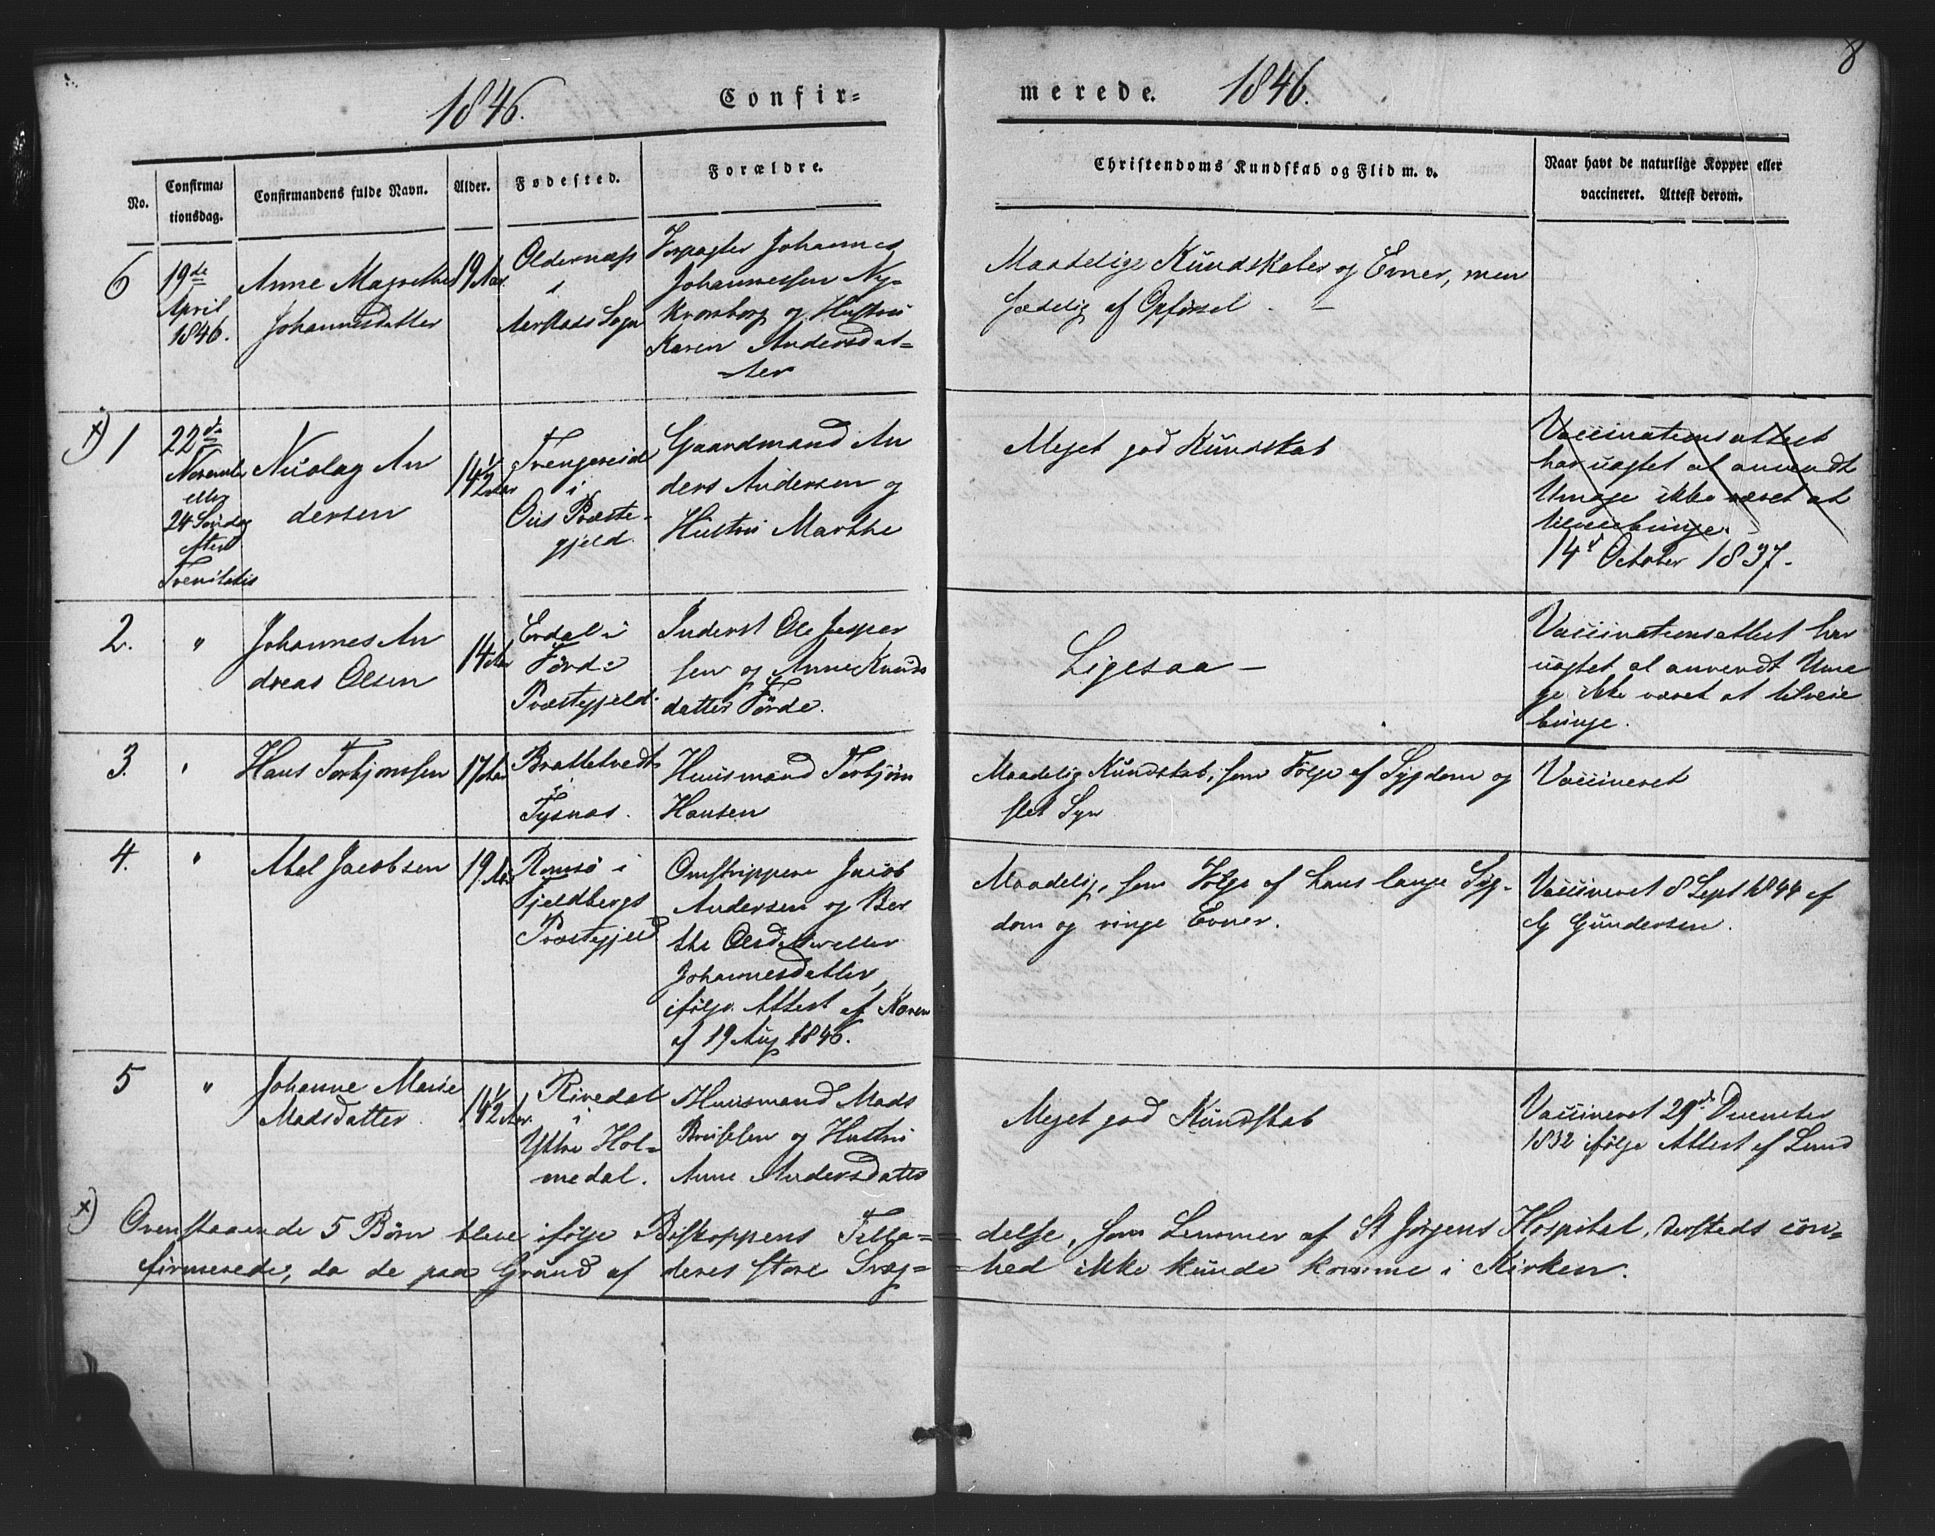 8
1846.
Confir=
merede.
1846.
No.
Confirma=
tionsdag.
Confirmandens fulde Navn.
Alder.
Fødested.
Forældre.
Christendoms Kundskab og Flid m. v.
Naar havt de naturlige Kopper eller
vaccineret. Attest derom.
6
19de
April
1846.
Anne Magrethe
Johannesdatter
19 Aar
Oldernæss
i
Aarstads Sogn
Forpagter Johannes
Johannessen Ny-
Kronborg og Hustru
Karen Andersdat=
=ter
Maadelige Kundskaber og Evner, men
sædelig af Opførsel. —
x) 1
22de
Novemb
eller
24 Søndag
efter
Trenitatis
Nicolay An
dersen
14½ Aar
Trengereid
i
Ous Præste-
gjeld.
Gaardmand An
ders Andersen og
Hustru Marthe
Meget god Kundskab
Vaccinationsattest
har uagtet al anvendt
Umage ikke været at
tilveiebringe.
14d October 1837.
2.
"
Johannes An
dreas Olsen
14 Aar
Erdal i
Førde
Præstegjeld.
Inderst Ole Jesper
sen og Anne Knuds
datter Førde.
Ligesaa —
Vaccinationsattest har
uagtet al anvendt Uma
ge ikke været at tilveie
bringe.
3.
"
Hans Torbjornsen
17 Aar
Brattetvedt
i
Tysnæs.
Huusmand Torbjørn
Hansen
Maadelig Kundskab, som Følge af Sygdom og
slet Syn
Vaccineret
4.
"
Abel Jacobsen
19 Aar
Romsø i
Fjeldbergs
Præstegjeld
Omstrippere Jacob
Andersen og Ber
the Olsdatter eller
Johannesdatter,
ifølge Attest af
af 19 Aug 1846.
Maadelig, som Følge af hans lange Syg-
dom og ringe Evner.
Vaccineret 8 Sept 1844 af
G Gundersen.
5
"
Johanne Marie
Madsdatter
14½ Aar.
Rivedal
i
Yttre Hol=
medal.
Huusmand Mads
og Hustru
Anne Andersdatter
Meget god Kundskab
Vaccineret 29d December
1832 ifølge Attest af Lund
x) Ovenstaaende 5 Børn bleve ifølge Biskoppens Tilla=
=delse, som Lemmer af St Jørgens Hospital, con=
firmerede, da de paa Grund af deres store Svag=
=hed ikke kunde komme i Kirken.